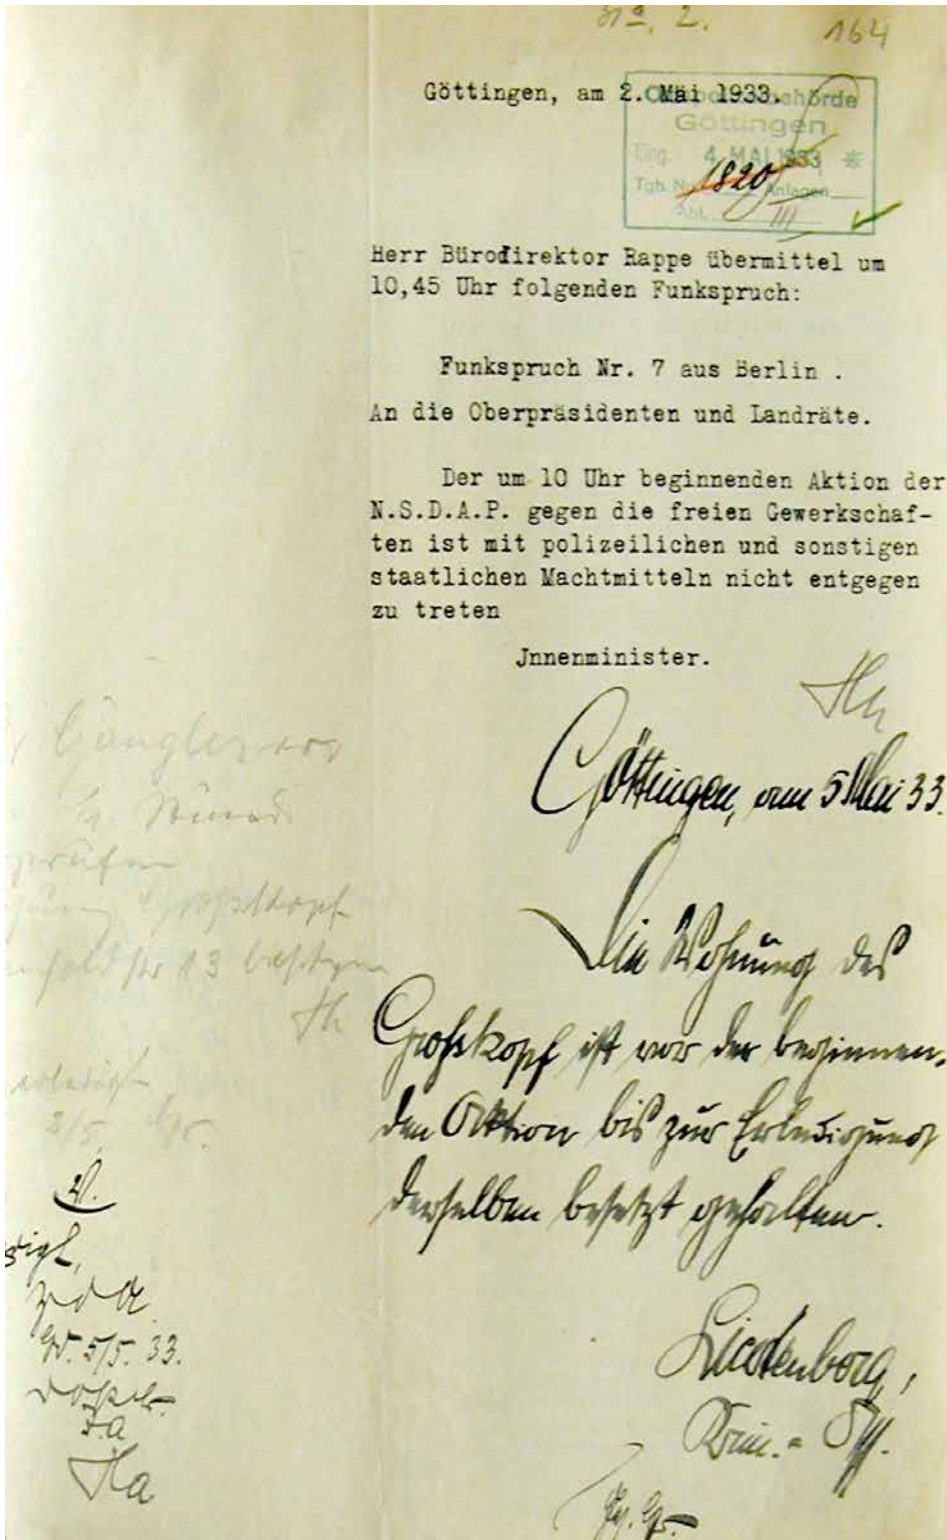 No. 2.
164
Göttingen, am 2. Mai 1933.
Ortspolizeibehörde
Göttingen
Eing. 4. MAI 1933
Tgb. No. 1820 Anlagen
Abt. III
Herr Bürodirektor Rappe übermittel um
10,45 Uhr folgenden Funkspruch:
Funkspruch Nr. 7 aus Berlin .
An die Oberpräsidenten und Landräte.
Der um 10 Uhr beginnenden Aktion der
N.S.D.A.P. gegen die freien Gewerkschaf-
ten ist mit polizeilichen und sonstigen
staatlichen Machtmitteln nicht entgegen
zu treten
Jnnenminister.
Göttingen, am 5 Mai 33.
Die Wohnung des
Großkopf ist vor der beginnen-
den Aktion bis zur Erledigung
derselben besetzt gehalten.
Krim.-
Großkopf
13 besetzen
erledigt
2/5.
V.
5/5. 33.